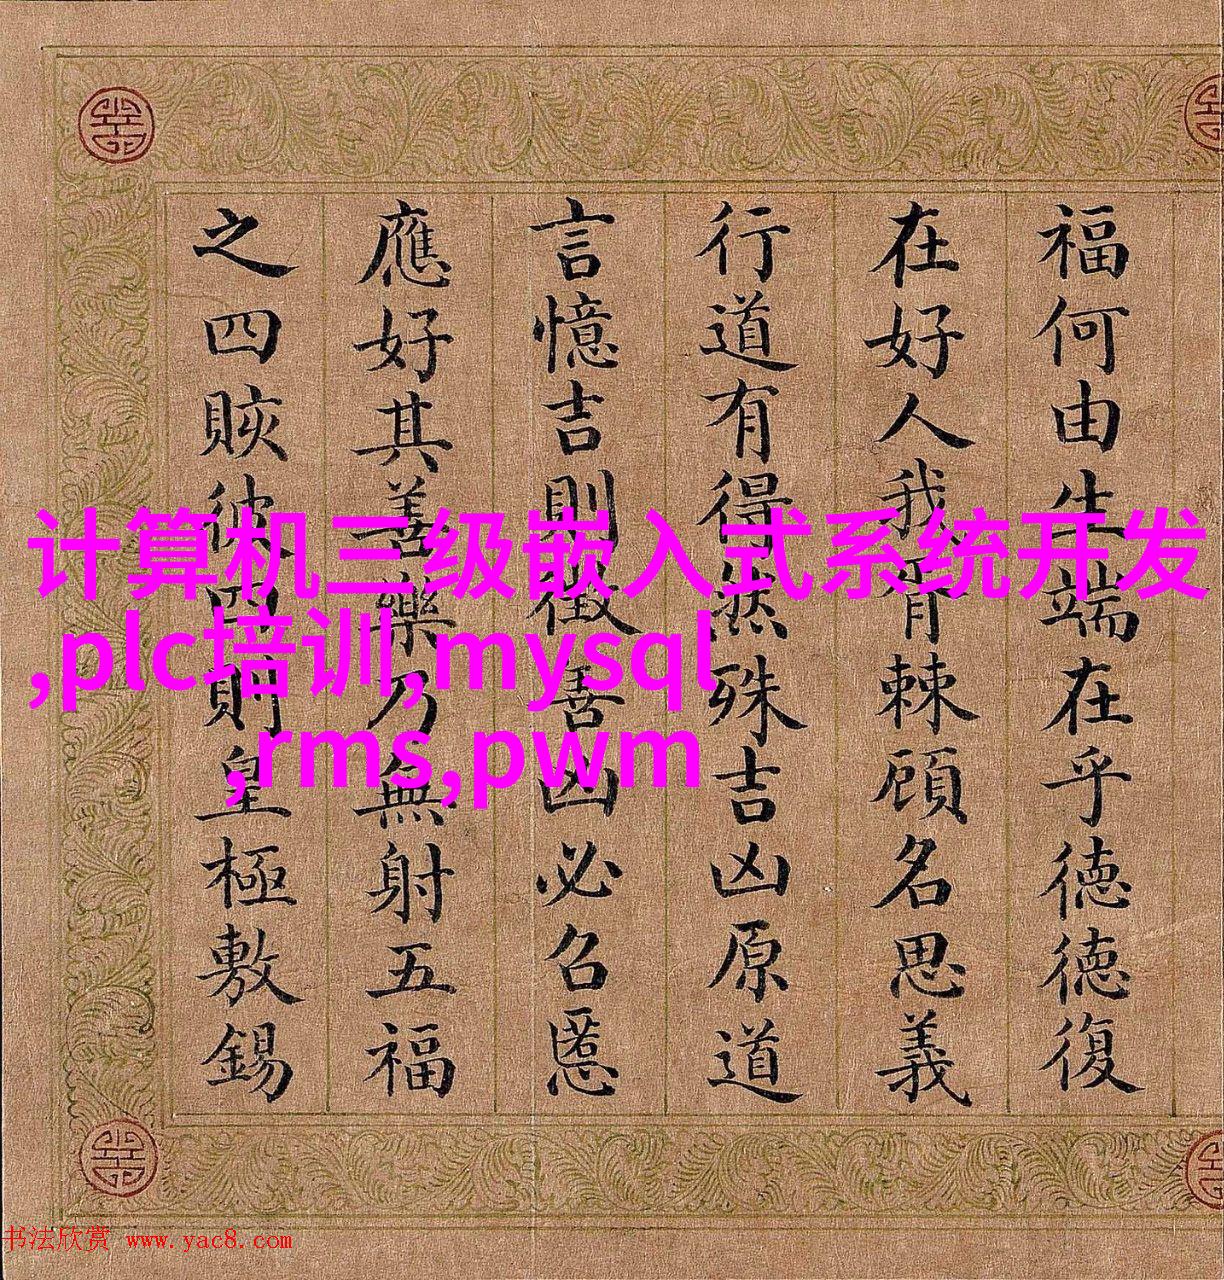 计算机三级嵌入式系统开发
,plc培训,mysql
,rms,pwm
福何由生端在乎徳徳復
在好人我棘顧名思義
行道有得然殊吉凶原道
言憶吉則徵善凶必召慝
應好其善樂乃無射五福
之四賅彼四則皇極敷錫
书法欣赏 www.yac8.com